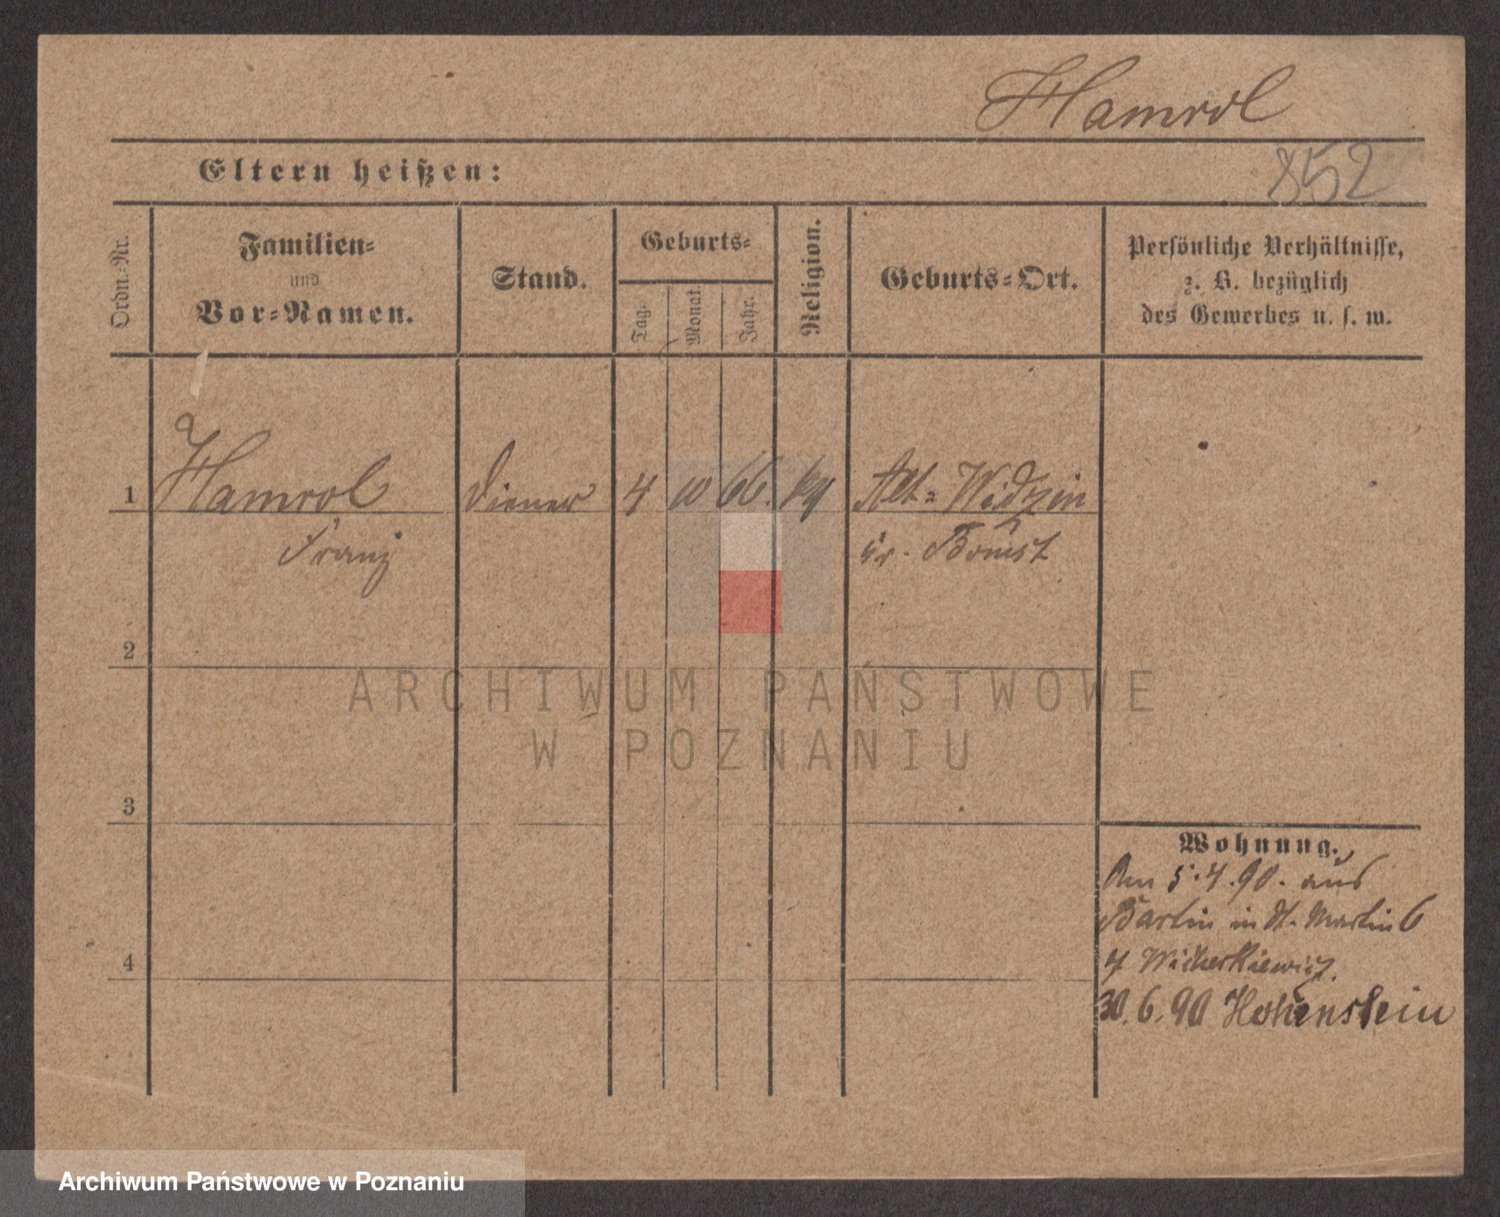 Hamrol
852
Eltern heißen:
Ordn.=Nr.
Familien=
und
Vor=Namen.
Stand.
Geburts=
Tag.
Monat.
Jahr.
Religion.
Geburts=Ort.
Persönliche Verhältnisse,
z. B. bezüglich
des Gewerbes u. s. w.
1 Hamrol Diener 4 10 66. Alt= Widzim
Franz Kr. Bomst
2
ARCHIWUM PAŃSTWOWE
W POZNANIU
3
Wohnung.
Am 5.4.90. aus
Berlin in St. Martin 6
Wicherkiewicz.
30.6.90 Hohenstein
4
Archiwum Państwowe w Poznaniu